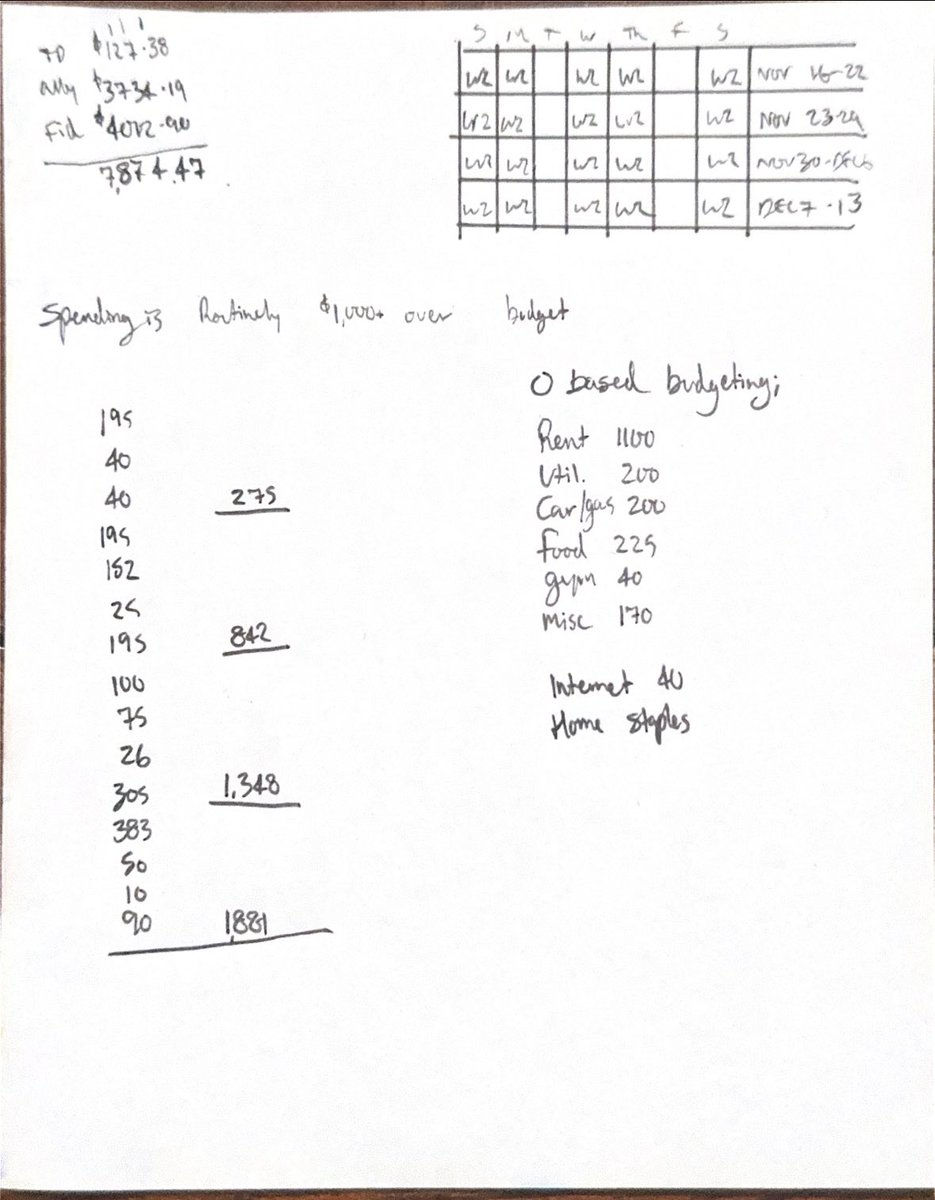 TD $127.38
Ally $3734.19
Fid $4012.90
7,874.47
S M T W Th F S
W2 W2 W2 W2 W2 NOV 16-22
W2 W2 W2 W2 W2 NOV 23-29
W2 W2 W2 W2 W2 NOV30-DEC6
W2 W2 W2 W2 W2 DEC7-13
Spending is Routinely $1,000+ over budget
195
40
40 275
195
152
25
195 842
100
75
26
305 1,348
383
50
10
90 1881
0 based budgeting;
Rent 1100
Util. 200
Car/gas 200
Food 225
gym 40
misc 170
Internet 40
Home staples